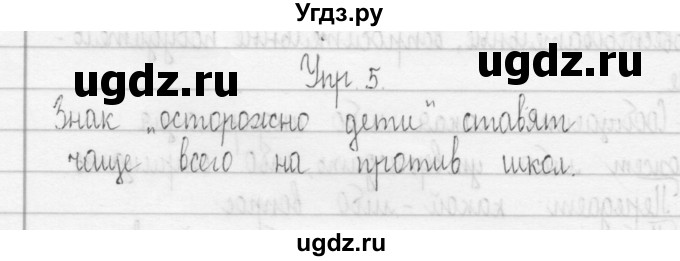 Угдз.ру
ugdz.ru
ugdz.ru
Упр 5.
Знак „осторожно дети" ставят
чаще всего на против школ.
ugdz.ru